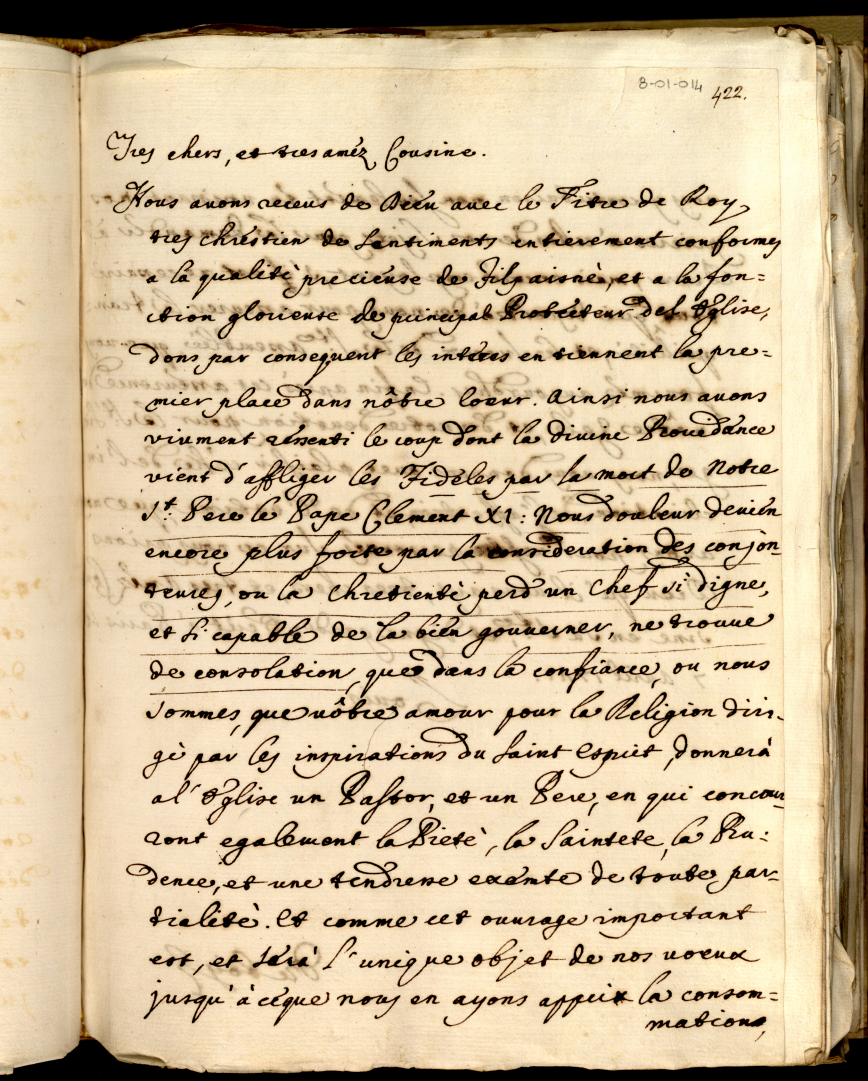 8-01-014
422.
Tres chers, et tres améz Cousine.
Nous avons receus de Dieu avec le Titre de Roy
tres Chrestien de Sentiments entierement conformes
a la qualitè precieuse de Filpaisnè, et a la fon=
ction glorieuse de principal Protecteur del Eglise,
dons par consequent les interes en tiennent la pre=
mier place dans nôtre Coeur. Ainsi nous avons
vivement ressenti le coup dont la divine Providance
vient d'affliger les Fideles par la mort de Notre
St. Pere le Pape Clement XI: Nous douleur devien
encore plus forte par la consideration des conjon
teures, ou la Chretientè perd un Chef si digne,
et si capable de la bien gouverner, ne trouve
de consolation, que dans la confiance, ou nous
sommes, que vôtre amour pour la Religion diri=
gè par les inspirations du Saint Espriet, donnerà
al' Eglise un Pastor, et un Pere, en qui concour
ront egalement la Pietè, la Saintete, la Pru=
dence, et une tendresse exemte de toute par=
tialitè. Et comme cet ouvrage important
est, et serà l'unique objet de nos voeux
jusqu'à ceque nous en ayons appeix la consom=
mation,